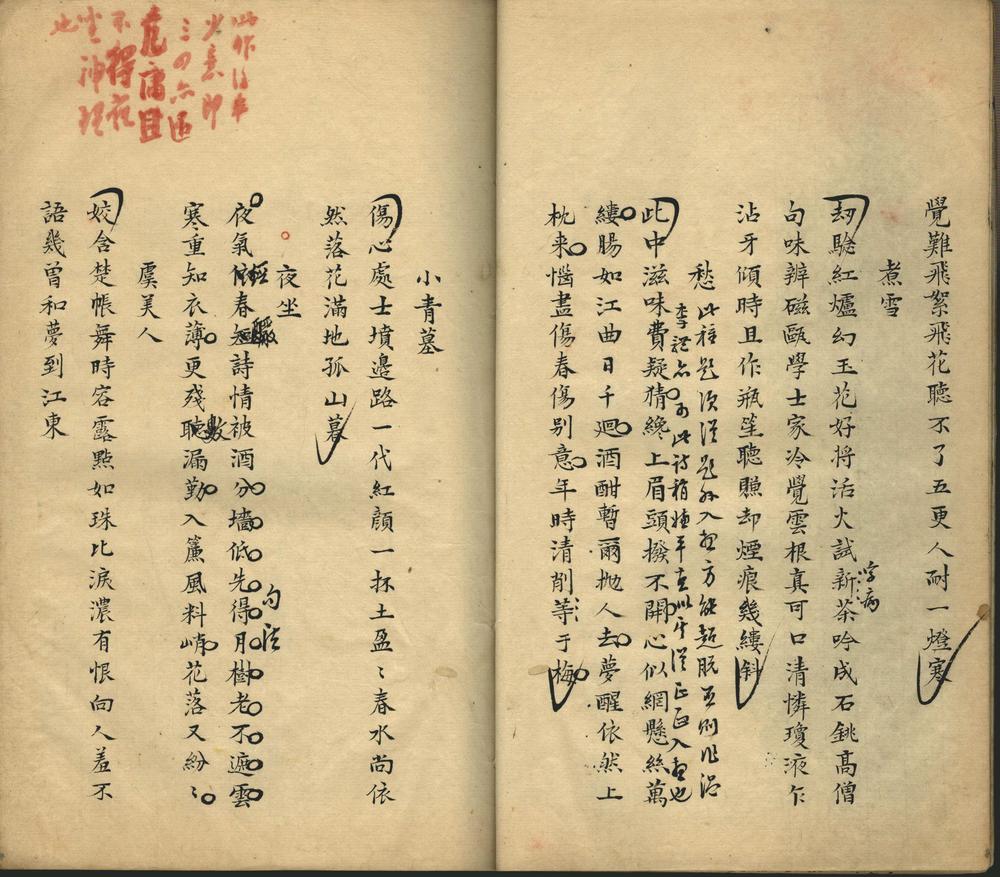 覺難飛絮飛花聽不了五更人耐一燈寒
煮雪
刧駘紅爐幻玉花好将活火試新茶吟成石銚高僧
句味辨磁甌學士家冷覺雲根真可口清憐瓊液乍
沾牙傾時且作瓶笙聽賸却煙痕幾縷斜
愁
此種題須從題外入想方能超脱否則作活
此中滋味費疑猜纔上眉頭撥不開心似網懸絲萬
縷腸如江曲日千廻酒酣暫爾抛人去夢醒依然上
枕来惱盡傷春傷别意年時清削等于梅
小青墓
傷心處士墳邉路一代紅顔一抔土盈〻春水尚依
然落花滿地孤山暮
夜坐
夜氣春詩情被酒分墻低先得月樹老不遮雲
句法
寒重知衣薄更殘聽漏勤入簾風料峭花落又紛〻
數
虞美人
姣含楚帳舞時容露㸃如珠比淚濃有恨向人羞不
語幾曾和夢到江東
此作
三四六
不得
神理
也